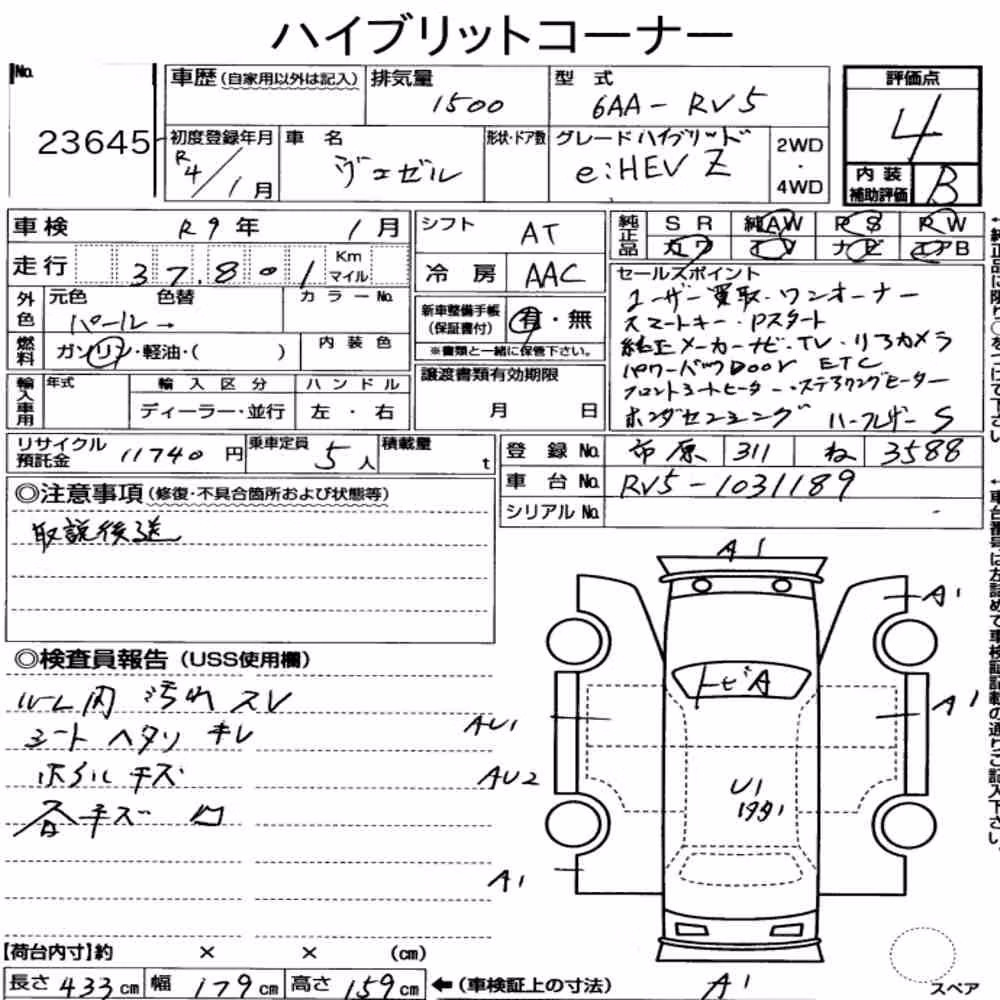 ハイブリットコーナー
No. 23645
車歴(自家用以外は記入) 排気量 1500 型式 6AA-RV5
初度登録年月 R4/1月 車名 ヴェゼル 形状・ドア数 グレード ハイブリッド e:HEV Z 2WD・4WD
評価点 4
内装補助評価 B
車検 R9年 1月
走行 37,801 Km マイル
外色 元色 パール→ 色替 カラーNo.
燃料 ガソリン・軽油・( ) 内装色
輸入車用 年式 輸入区分 ディーラー・並行 ハンドル 左・右
シフト AT
冷房 AAC
新車整備手帳(保証書付) 有・無
※書類と一緒に保管下さい。
譲渡書類有効期限 月 日
純正品 SR 純AW PS PW
カワ TV ナビ エアB
セールスポイント
ユーザー買取・ワンオーナー
スマートキー・Pスタート
純正メーカーナビ・TV・リアカメラ
パワーバックDoor ETC
フロントシートヒーター・ステアリングヒーター
ホンダセンシング ハーフレザーS
リサイクル預託金 11740円 乗車定員 5人 積載量 t
登録No. 市原 311 ね 3588
車台No. RV5-1031189
シリアルNo.
◎注意事項(修復・不具合箇所および状態等)
取説後送
◎検査員報告(USS使用欄)
ルーム内 汚れ スレ
シート ヘタリ キレ
ホイル キズ
各キズ 凹
A1
A1
トビA
A1
AU1
AU2
U1
A1
A1
【荷台内寸】約 × × (cm)
長さ 433cm 幅 179cm 高さ 159cm ←(車検証上の寸法)
スペア
←純正品に限り○をつけて下さい
←車台番号は左詰めで車検証記載の通りご記入下さい。